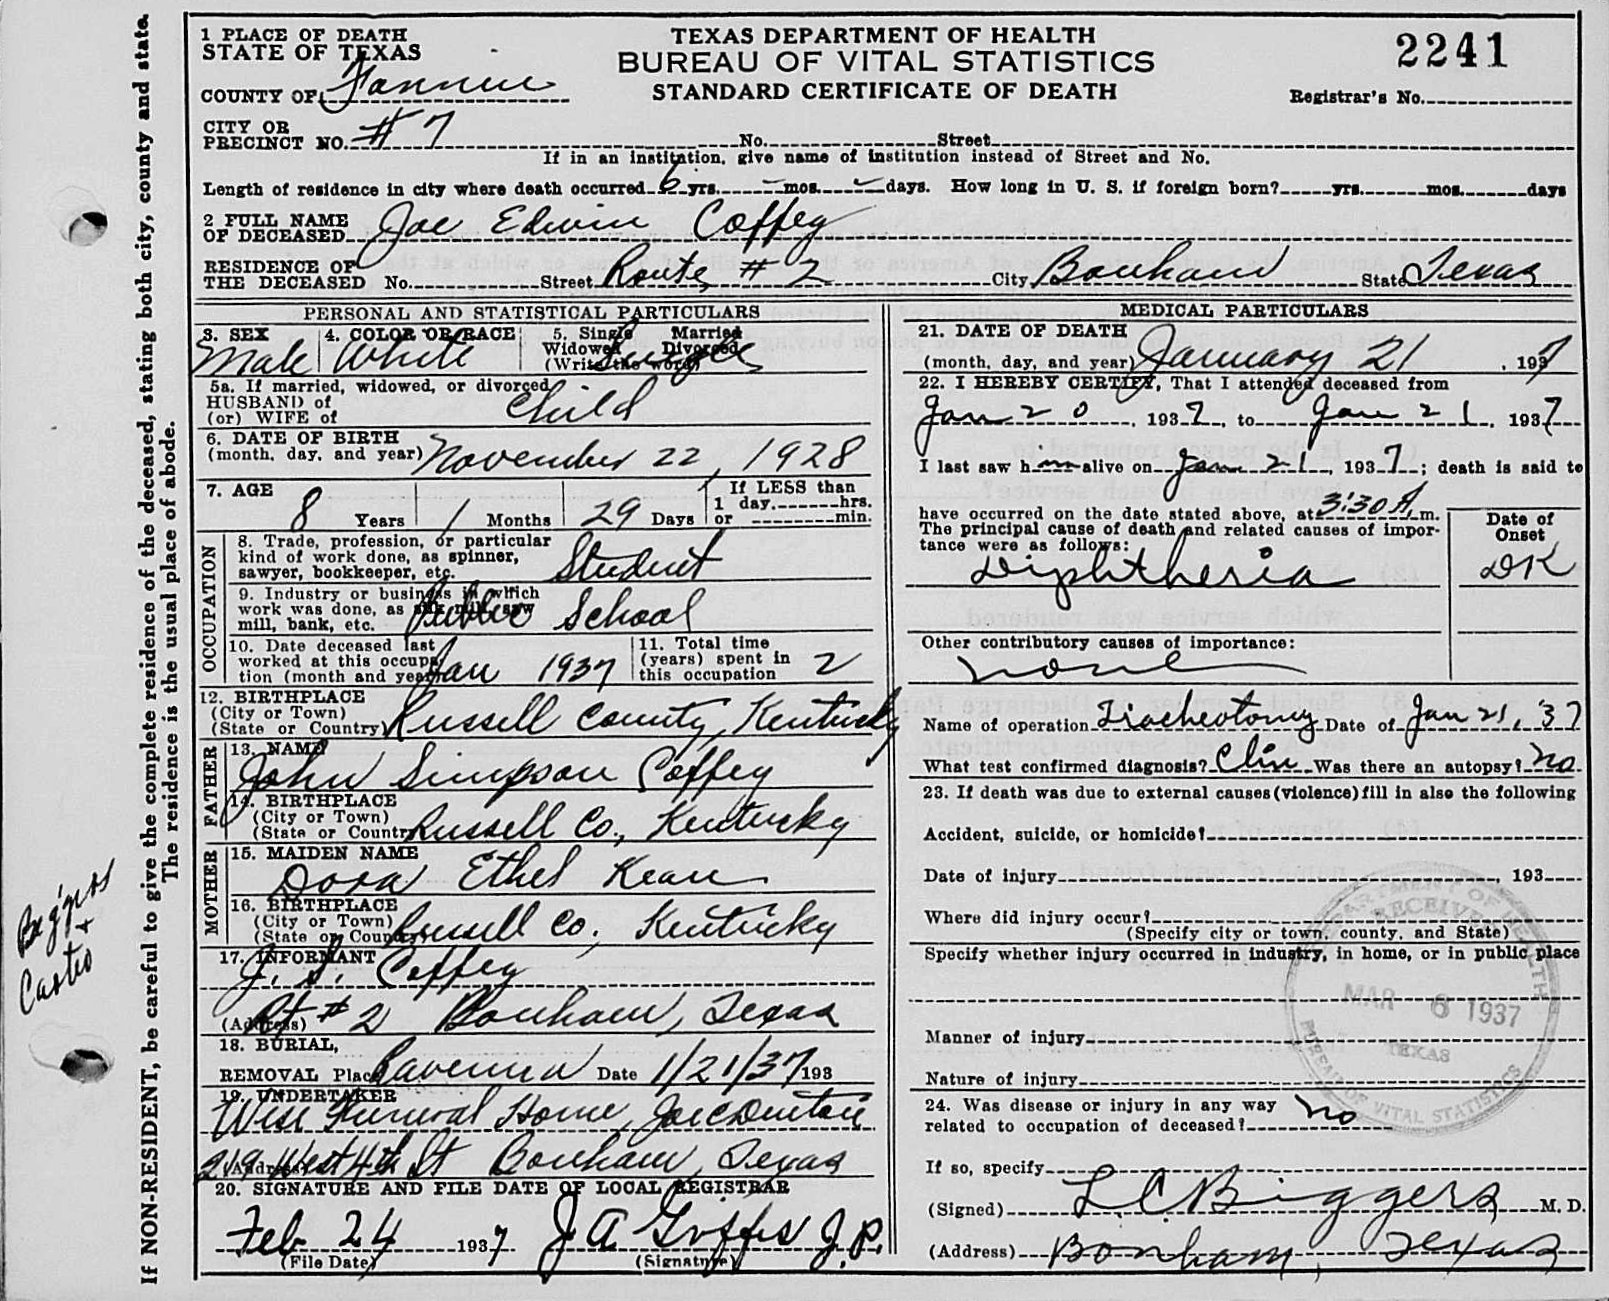 1 PLACE OF DEATH
STATE OF TEXAS
COUNTY OF Fannin
TEXAS DEPARTMENT OF HEALTH
BUREAU OF VITAL STATISTICS
STANDARD CERTIFICATE OF DEATH
2241
Registrar's No.
CITY OR
PRECINCT NO. #7 No. Street
If in an institution, give name of institution instead of Street and No.
Length of residence in city where death occurred 6 yrs. - mos. - days. How long in U. S. if foreign born? yrs. mos. days
2 FULL NAME
OF DECEASED Joe Edwin Coffey
RESIDENCE OF
THE DECEASED No. Street Route #2 City Bonham State Texas
PERSONAL AND STATISTICAL PARTICULARS
3. SEX 4. COLOR OR RACE 5. Single Married
Widowed Divorced
(Write the word)
Male White Single
5a. If married, widowed, or divorced
HUSBAND of
(or) WIFE of Child
6. DATE OF BIRTH
(month, day, and year) November 22, 1928
7. AGE If LESS than
1 day, hrs.
8 Years 1 Months 29 Days or min.
OCCUPATION
8. Trade, profession, or particular
kind of work done, as spinner,
sawyer, bookkeeper, etc. Student
9. Industry or business in which
work was done, as silk mill, saw
mill, bank, etc. Public School
10. Date deceased last
worked at this occupa-
tion (month and year) Jan 1937
11. Total time
(years) spent in
this occupation 2
12. BIRTHPLACE
(City or Town)
(State or Country) Russell County, Kentucky
FATHER
13. NAME
John Simpson Coffey
14. BIRTHPLACE
(City or Town)
(State or Country) Russell Co., Kentucky
MOTHER
15. MAIDEN NAME
Dora Ethel Kean
16. BIRTHPLACE
(City or Town)
(State or Country) Russell Co, Kentucky
17. INFORMANT
J. S. Coffey
(Address) Rt #2 Bonham, Texas
18. BURIAL,
REMOVAL Place Ravenna Date 1/21/37 193
19. UNDERTAKER
Wise Funeral Home, Joe C Denton
(Address) 219 West 4th St Bonham, Texas
20. SIGNATURE AND FILE DATE OF LOCAL REGISTRAR
Feb 24 1937 J A Griffis J.P.
(File Date) (Signature)
MEDICAL PARTICULARS
21. DATE OF DEATH
(month, day, and year) January 21, 1937
22. I HEREBY CERTIFY, That I attended deceased from
Jan 20, 1937, to Jan 21, 1937
I last saw him alive on Jan 21, 1937; death is said to
have occurred on the date stated above, at 3:30 A. m.
The principal cause of death and related causes of impor-
tance were as follows:
Date of
Onset
Diphtheria DK
Other contributory causes of importance:
none
Name of operation Tracheotomy Date of Jan 21, '37
What test confirmed diagnosis? Clin Was there an autopsy? no
23. If death was due to external causes (violence) fill in also the following
Accident, suicide, or homicide?
Date of injury , 193
Where did injury occur?
(Specify city or town, county, and State)
Specify whether injury occurred in industry, in home, or in public place
Manner of injury
Nature of injury
24. Was disease or injury in any way
related to occupation of deceased? no
If so, specify
(Signed) L C Biggers M. D.
(Address) Bonham, Texas
DEPARTMENT OF HEALTH
RECEIVED
MAR 6 1937
TEXAS
BUREAU OF VITAL STATISTICS
If NON-RESIDENT, be careful to give the complete residence of the deceased, stating both city, county and state.
The residence is the usual place of abode.